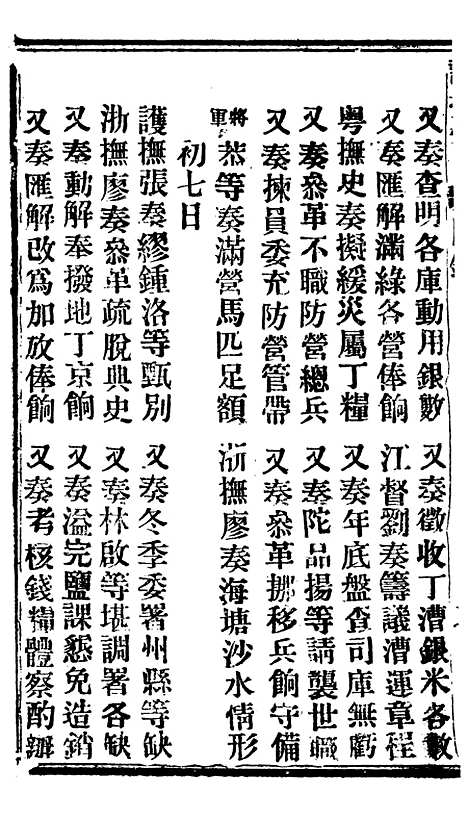 又奏查明各庫動用銀數　又奏徵收丁漕銀米各數
又奏匯解滿綠各營俸餉　江督劉奏籌議漕運章程
粵撫史奏擬緩災屬丁糧　又奏年底盤查司庫無虧
又奏叅革不職防營總兵　又奏陀品揚等請襲世職
又奏揀員委充防營管帶　又奏叅革挪移兵餉守備
將軍恭等奏滿營馬匹足額　浙撫廖奏海塘沙水情形
初七日
護撫張奏繆鍾洛等甄別　又奏冬季委署州縣等缺
浙撫廖奏叅革疏脫典史　又奏林啟等堪調署各缺
又奏動解奉撥地丁京餉　又奏溢完鹽課懇免造銷
又奏匯解改為加放俸餉　又奏考核錢糧體察酌辦